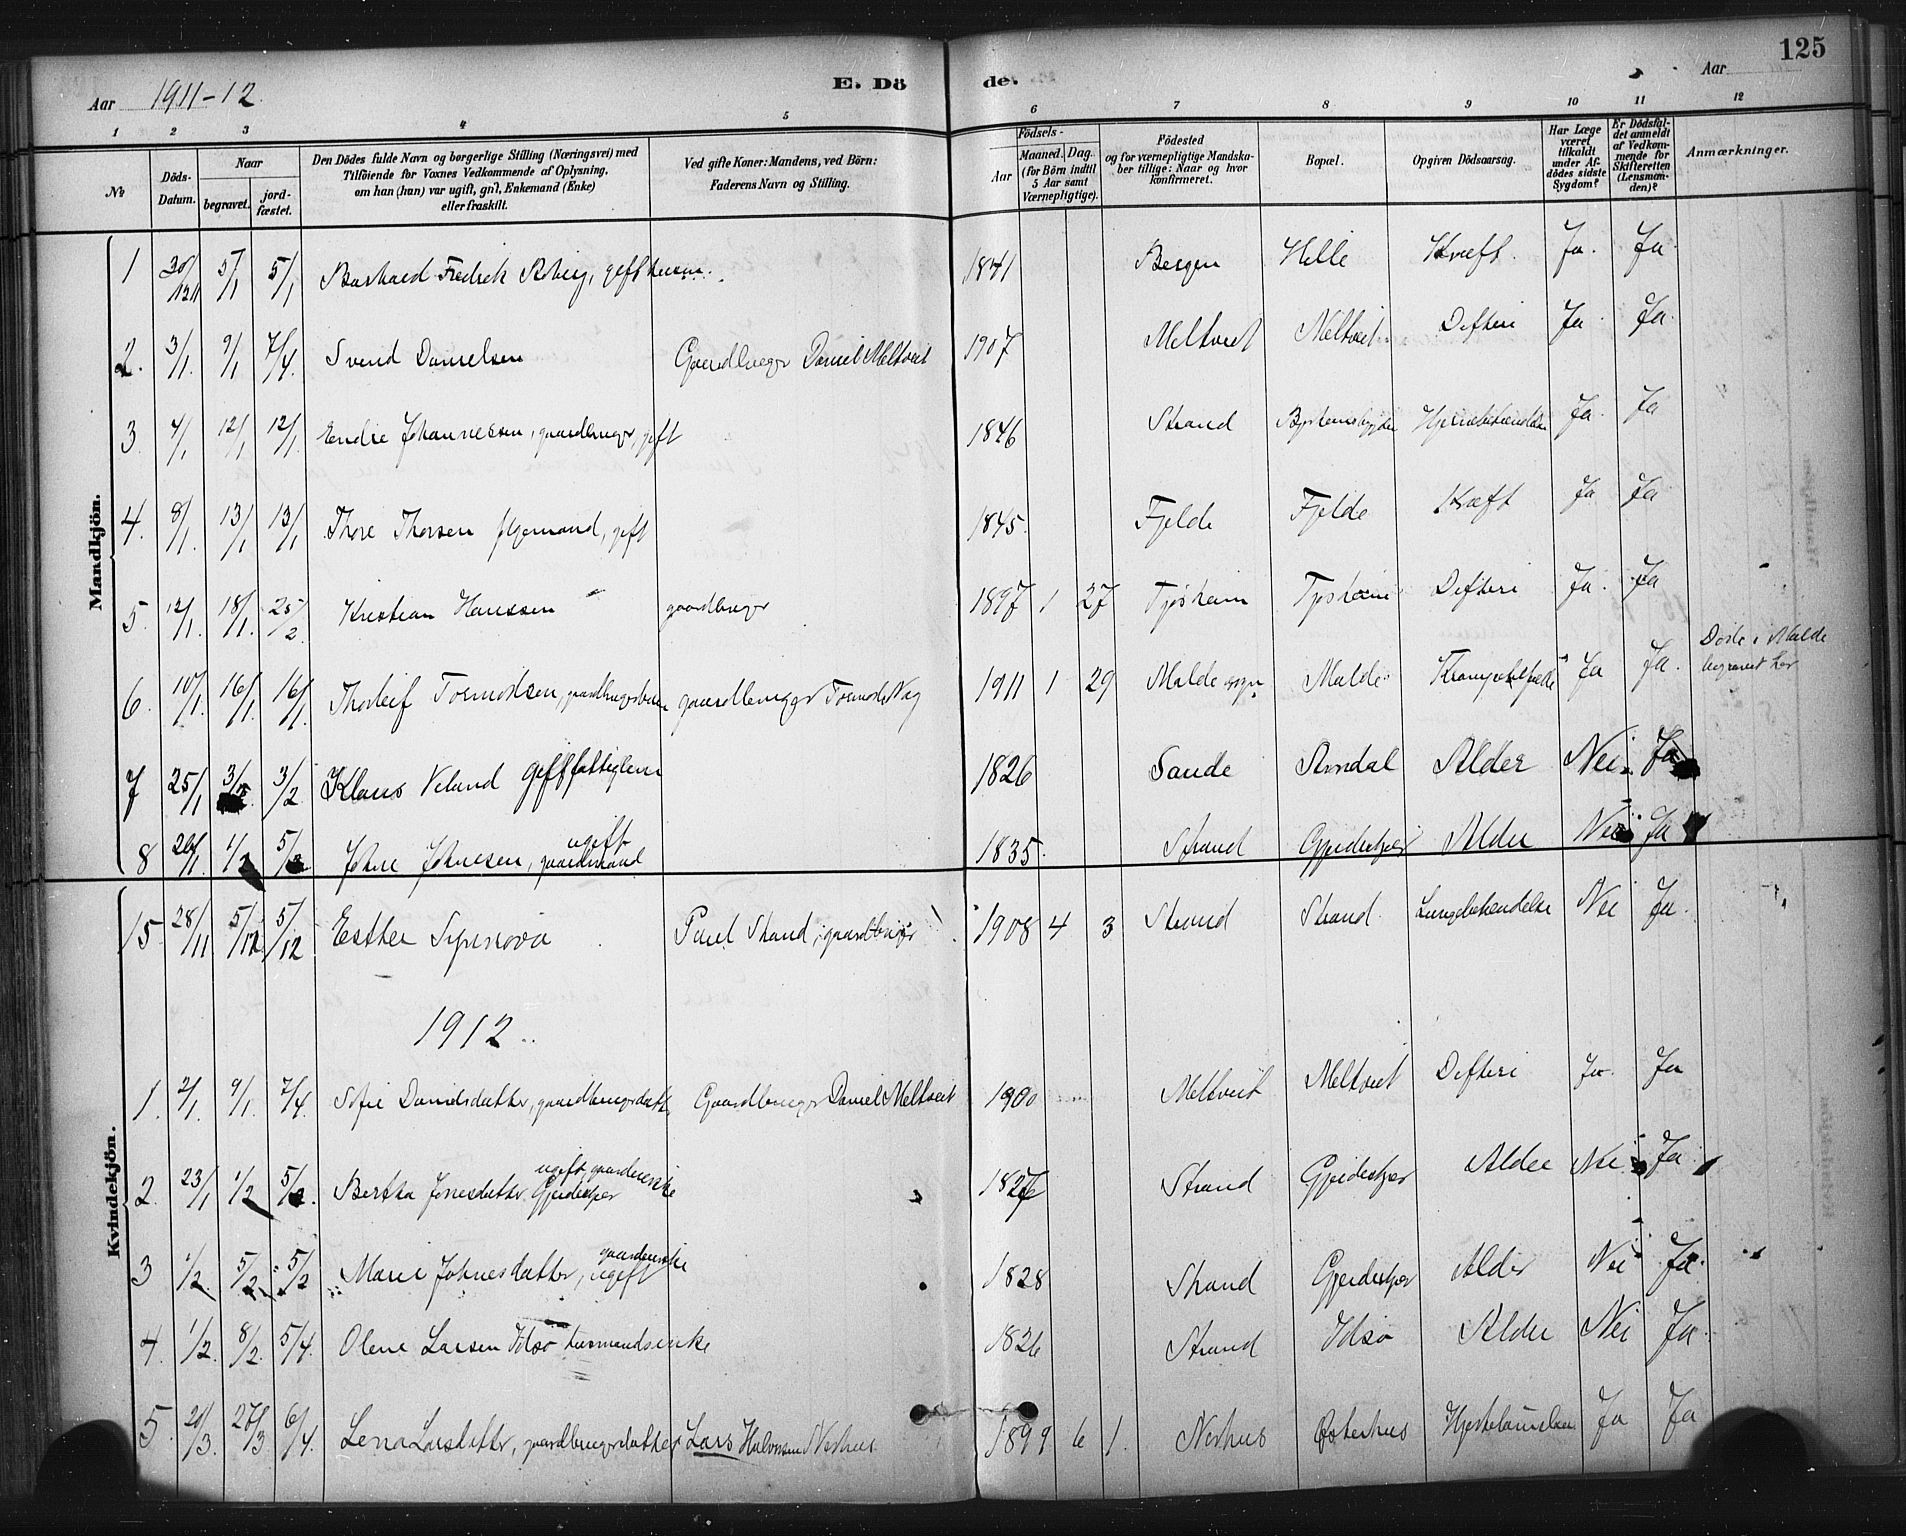 125
Aar 1911-12.
E. Dö de.
Aar
1 2 3 4 5 6 7 8 9 10 11 12
№
Döds-Datum.
Naar
begravet.
jord-fæstet.
Den Dödes fulde Navn og borgerlige Stilling (Næringsvei) med
Tilföiende for Voxnes Vedkommende af Oplysning,
om han (hun) var ugift, gift, Enkemand (Enke)
eller fraskilt.
Ved gifte Koner: Mandens, ved Börn:
Faderens Navn og Stilling.
Födsels-
Aar
Maaned. Dag.
(for Börn indtil
5 Aar samt
Værnepligtige).
Födested
og for værnepligtige Mandska-
ber tillige: Naar og hvor
konfirmeret.
Bopæl.
Opgiven Dödsaarsag.
Har Læge
været
tilkaldt
under Af-
dödes sidste
Sygdom?
Er Dödsfal-
det anmeldt
af Vedkom-
mende for
Skifteretten
(Lensman-
den)?
Anmærkninger.
Mandkjön.
1 30/12 11 5/1 5/1 Fredrik gift 1841 Bergen Helle Kræft. Ja. Ja
2. 3/1. 9/1 7/4. Svend Danielsen Gaardbruger Daniel Meltveit 1907 Meltveit Meltveit Difteri Ja Ja.
3 4/1 12/1 12/1 Endre Johannessen, gaardbruger, gift 1846 Strand Ja. Ja
4. 8/1. 13/1 13/1 Thore Thorsen gift 1845. Fjelde Fjelde Kræft Ja Ja
5 12/1. 18/1. 25/2. Kristian Hanssen gaardbruger 1897 1 27 Tysheim Difteri Ja. Ja
6. 10/1. 16/1. 16/1. Thorleif Tormodsen, gaardbruger Tormod Vaag 1911 1 29 Malde sogn Malde Ja Ja. Døde i Malde
begravet her
7 25/1 3/2 3/2 Klaus Veland gift 1826 Sande Alder Nei. Ja
8 1/2 5/2 Johne Johnesen, ugift 1835. Strand Gjerdeskjær Alder Nei Ja
Kvindekjön.
15. 28/11 5/12 5/12 Esther Synnøva Paul Strand, gaardbruger 1908 4 3 Strand Strand. Lungebetændelse Nei Ja.
1912.
1. 2/1. 9/1. 7/4. Sofie Danielsdatter, gaardbrugerdatter Gaardbruger Daniel Meltveit 1900 Meltveit Meltveit Difteri Ja. Ja
2. 23/1 1/2 5/2. Bertha Jonesdatter Gjerdeskjær ugift Strand Gjerdeskjær Alder Nei Ja
3 1/2. 5/2 5/2 Marie Johnesdatter, ugift 1828 Strand Gjerdeskjær Alder Nei Ja.
4. 1/2. 8/2. 5/4. Olene Larsen Idsø husmandsenke 1826 Strand Idsø Alder Nei Ja.
5. 20/3. 6/4. Lena Larsdatter, gaardbrugerdatter Lars Halvorsen Neshus 1899 6 1. Neshus Østerhus Ja Ja